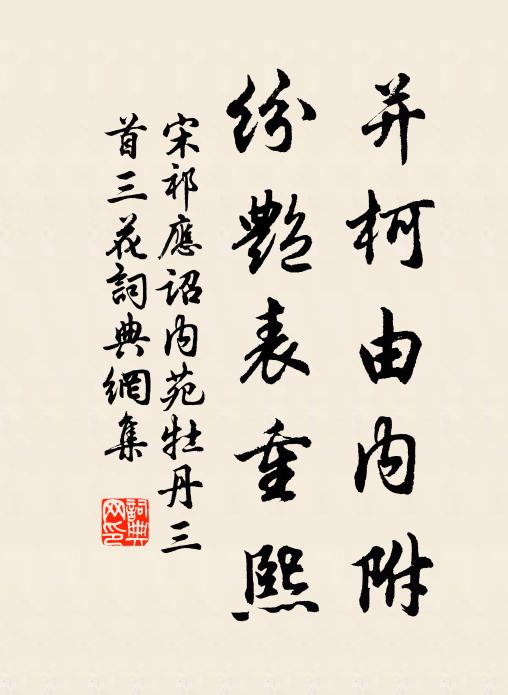 并柯由内附
紛艷表重熙
宋祁應詔内苑牡丹三
首三花詞典網集
詞典
网印